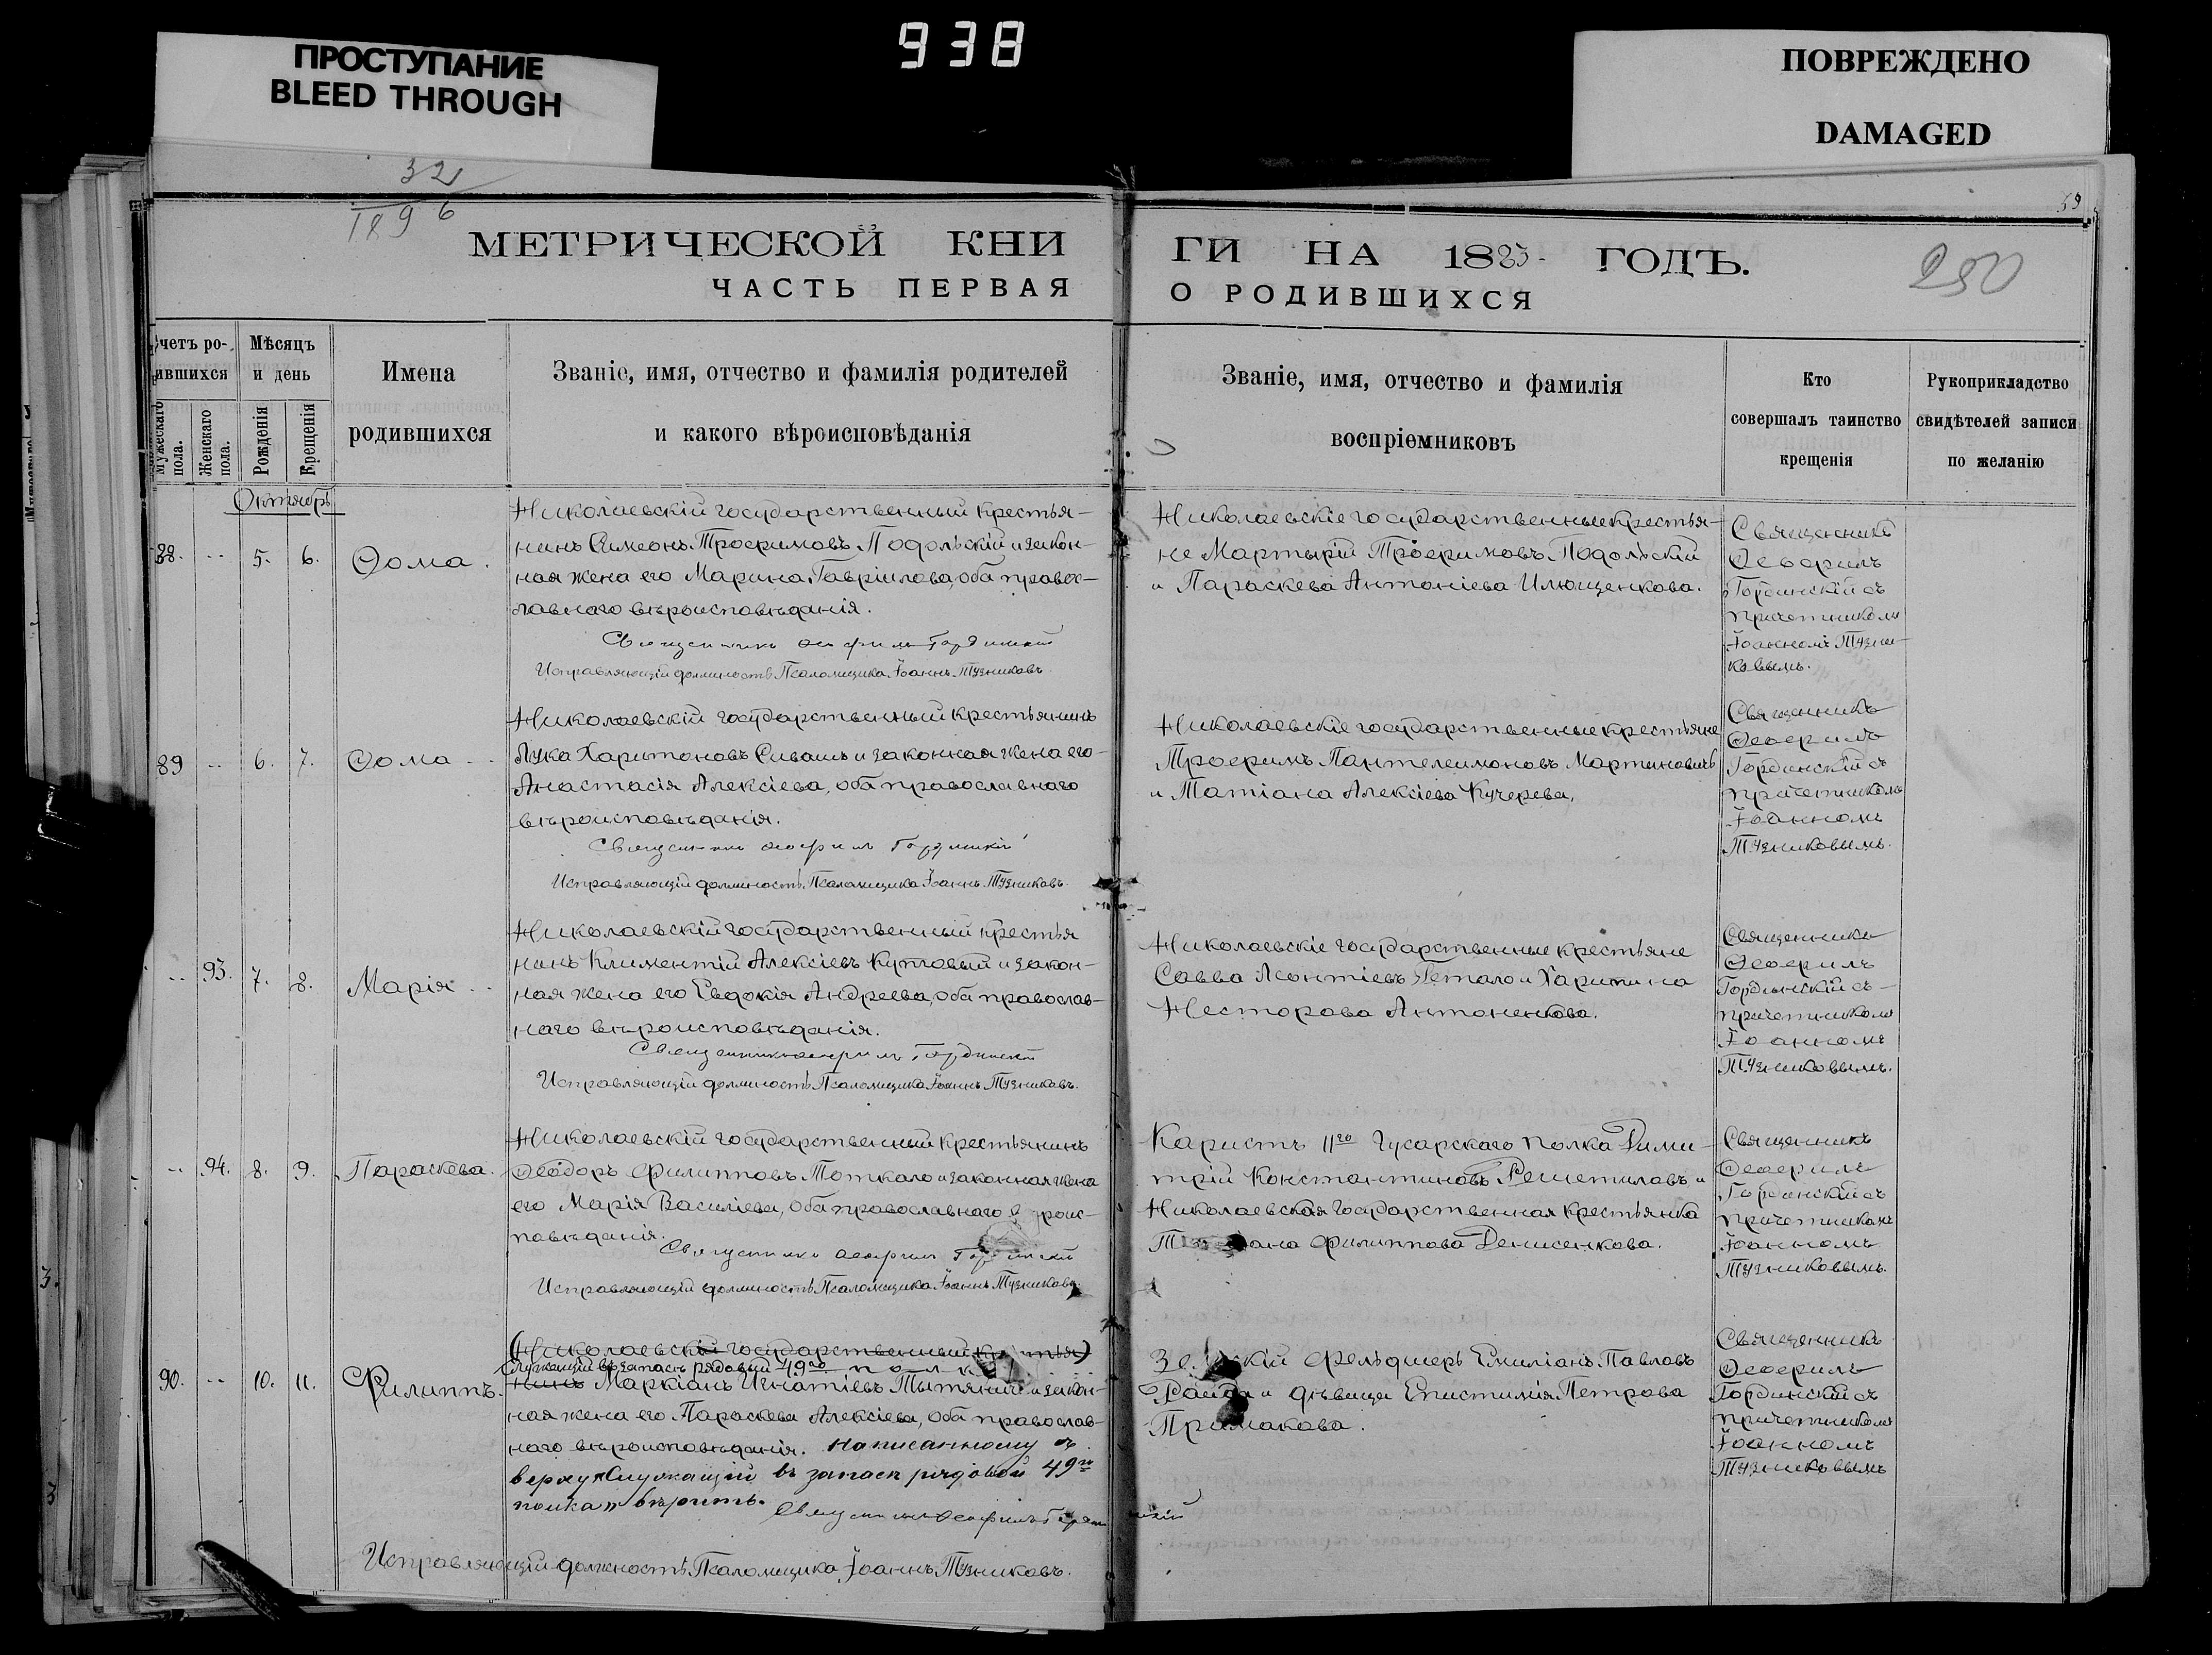 ПРОСТУПАНИЕ
BLEED THROUGH
938
ПОВРЕЖДЕНО
DAMAGED
32
1896
59
250
МЕТРИЧЕСКОЙ КНИ
ЧАСТЬ ПЕРВАЯ
ГИ НА 1885 ГОДЪ.
О РОДИВШИХСЯ
четъ ро-
ившихся
Мѣсяцъ
и день
Мужескаго пола.
Женскаго пола.
Рожденія
Крещенія
Имена
родившихся
Званіе, имя, отчество и фамилія родителей
и какого вѣроисповѣданія
Званіе, имя, отчество и фамилія
воспріемниковъ
Кто
совершалъ таинство
крещенія
Рукоприкладство
свидѣтелей записи
по желанію
Октябрь
88. -- 5. 6. Ѳома.
Николаевскій государственный крестья-
нинъ Симеонъ Трофимовъ Подольскій и закон-
ная жена его Марина Гавріилова, оба правос-
лавнаго вѣроисповѣданія.
Священникъ Ѳеофилъ Гординскій
Исправляющій должность Псаломщика Іоаннъ Тузниковъ.
Николаевскіе государственные крестья-
не Мартирій Трофимовъ Подольскій
и Параскева Антоніева Илющенкова.
Священникъ
Ѳеофилъ
Гординскій съ
причетникомъ
Іоанномъ Тузни-
ковымъ.
89 -- 6. 7. Ѳома --
Николаевскій государственный крестьянинъ
Лука Харитоновъ Сивашъ и законная жена его
Анастасія Алексіева, оба православнаго
вѣроисповѣданія.
Священникъ Ѳеофилъ Гординскій
Исправляющій должность Псаломщика Іоаннъ Тузниковъ.
Николаевскіе государственные крестьяне
Трофимъ Пантелеимоновъ Мартиновичъ
и Татіана Алексіева Кучерева.
Священникъ
Ѳеофилъ
Гординскій съ
причетникомъ
Іоанномъ
Тузниковымъ.
-- 93. 7. 8. Марія --
Николаевскій государственный крестья
нинъ Климентій Алексіевъ Кутовый и закон-
ная жена его Евдокія Андреева, оба православ-
наго вѣроисповѣданія.
Священникъ Ѳеофилъ Гординскій
Исправляющій должность Псаломщика Іоаннъ Тузниковъ.
Николаевскіе государственные крестьяне
Савва Леонтіевъ Гетало и Харитина
Несторова Антоненкова.
Священникъ
Ѳеофилъ
Гординскій съ
причетникомъ
Іоанномъ
Тузниковымъ.
-- 94. 8. 9. Параскева.
Николаевскій государственный крестьянинъ
Ѳеодоръ Филипповъ Тоткало и законная жена
его Марія Василіева, оба православнаго вѣроис-
повѣданія.
Священникъ Ѳеофилъ Гординскій
Исправляющій должность Псаломщика Іоаннъ Тузниковъ.
11го Гусарскаго полка Дими-
трій Константиновъ Решетиловъ и
Николаевская государственная крестьянка
Филиппова Денисенкова.
Священникъ
Ѳеофилъ
Гординскій съ
причетникомъ
Іоанномъ
Тузниковымъ.
90. -- 10. 11. Филиппъ.
(Николаевскій государственный крестья)
Служащій въ запасѣ рядовый 49го полка
нинъ Маркіанъ Игнатіевъ и закон-
ная жена его Параскева Алексіева, оба православ-
наго вѣроисповѣданія. Написанному с
верху "Служащій въ запасѣ рядовой 49го
полка" вѣрить.
Священникъ Ѳеофилъ Гординскій
Исправляющій должность Псаломщика Іоаннъ Тузниковъ.
фельдшеръ Емиліанъ Павловъ
и дѣвица Епистимія Петрова
Примакова.
Священникъ
Ѳеофилъ
Гординскій съ
причетникомъ
Іоанномъ
Тузниковымъ